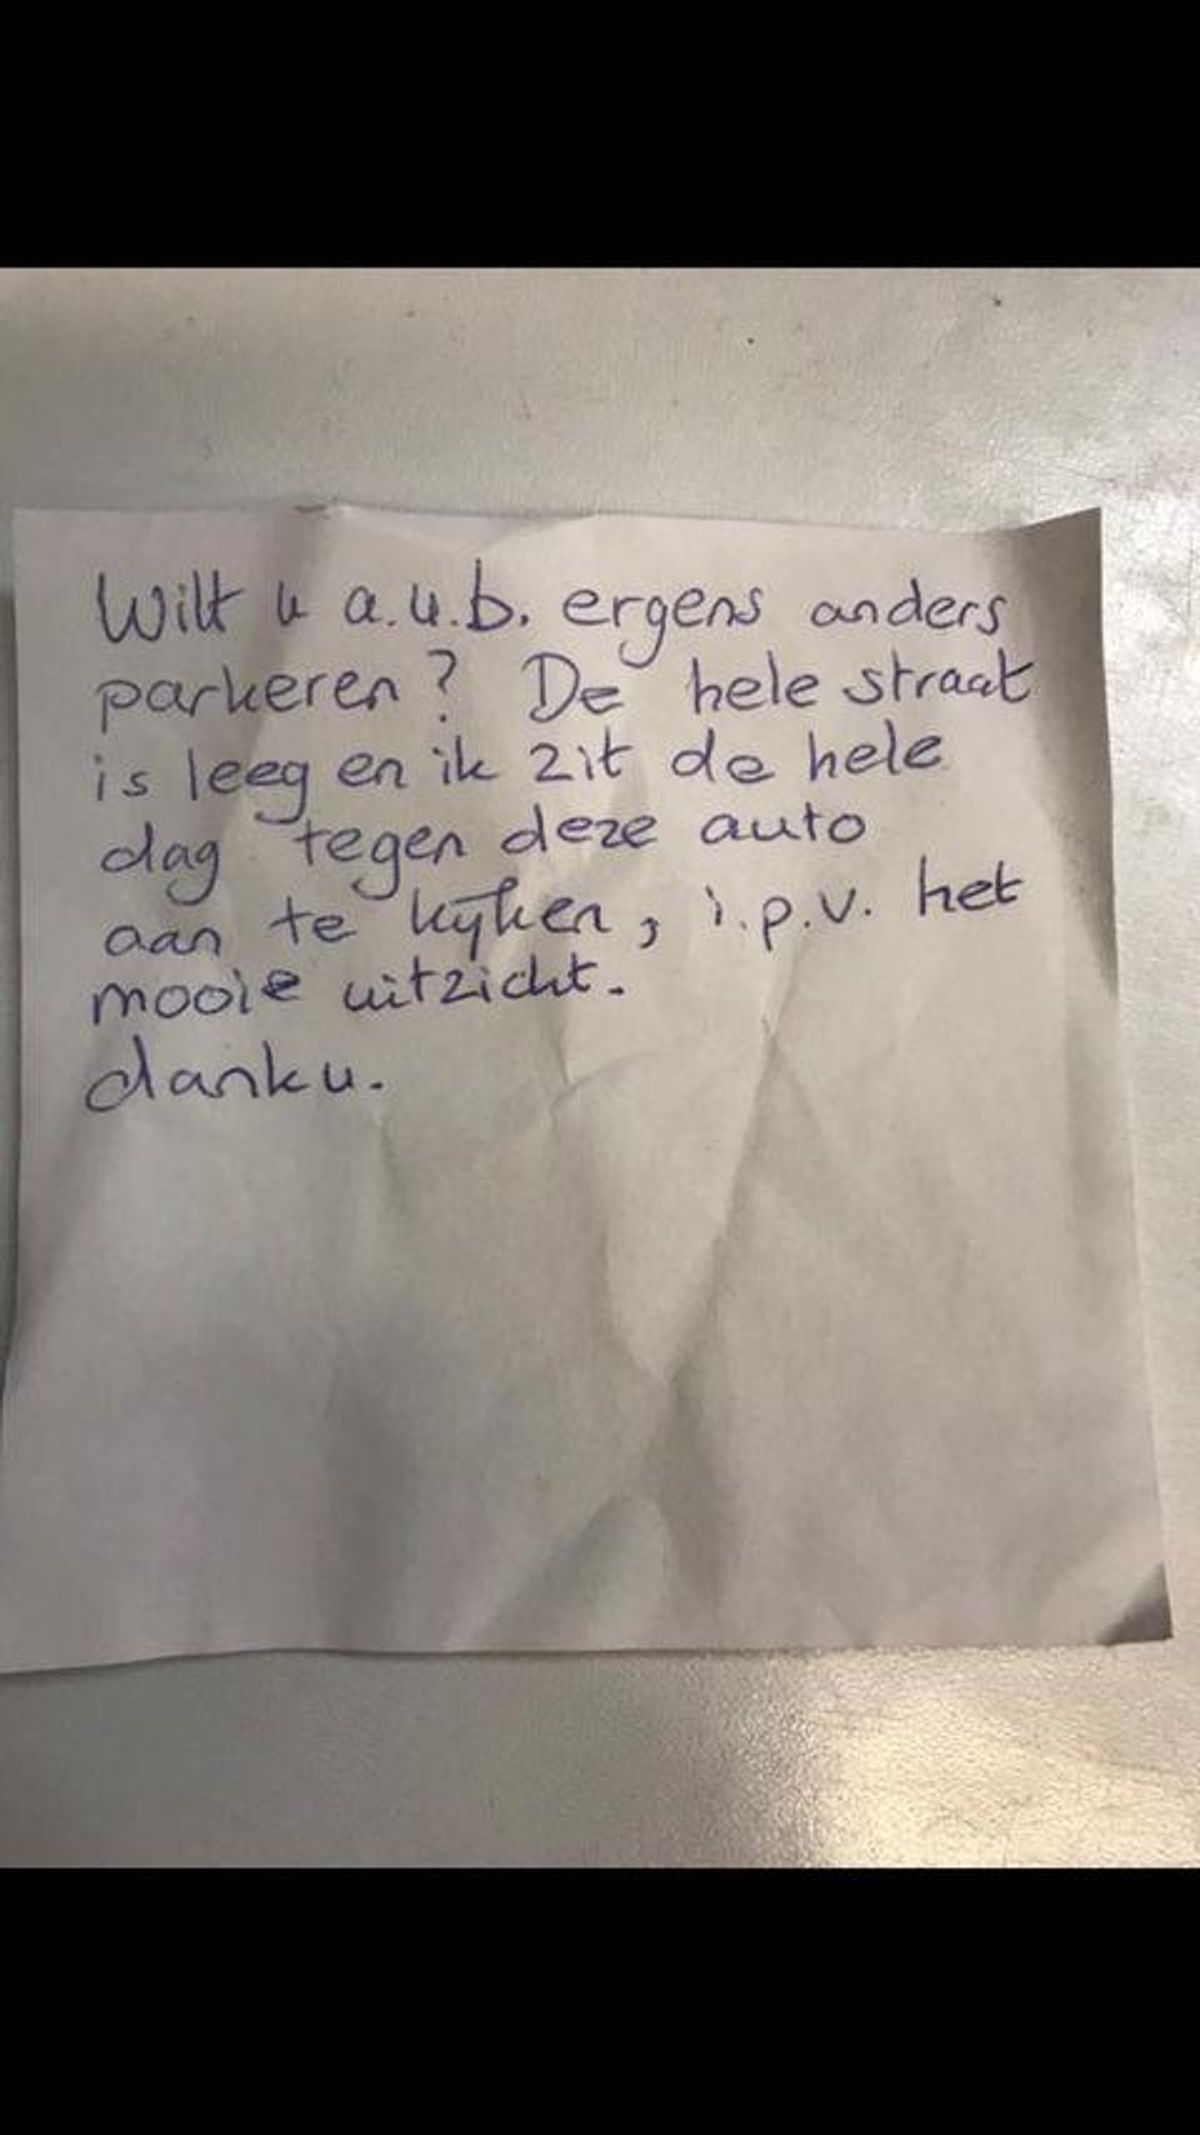 Wilt u a.u.b. ergens anders
parkeren? De hele straat
is leeg en ik zit de hele
dag tegen deze auto
aan te kijken, i.p.v. het
mooie uitzicht.
danku.